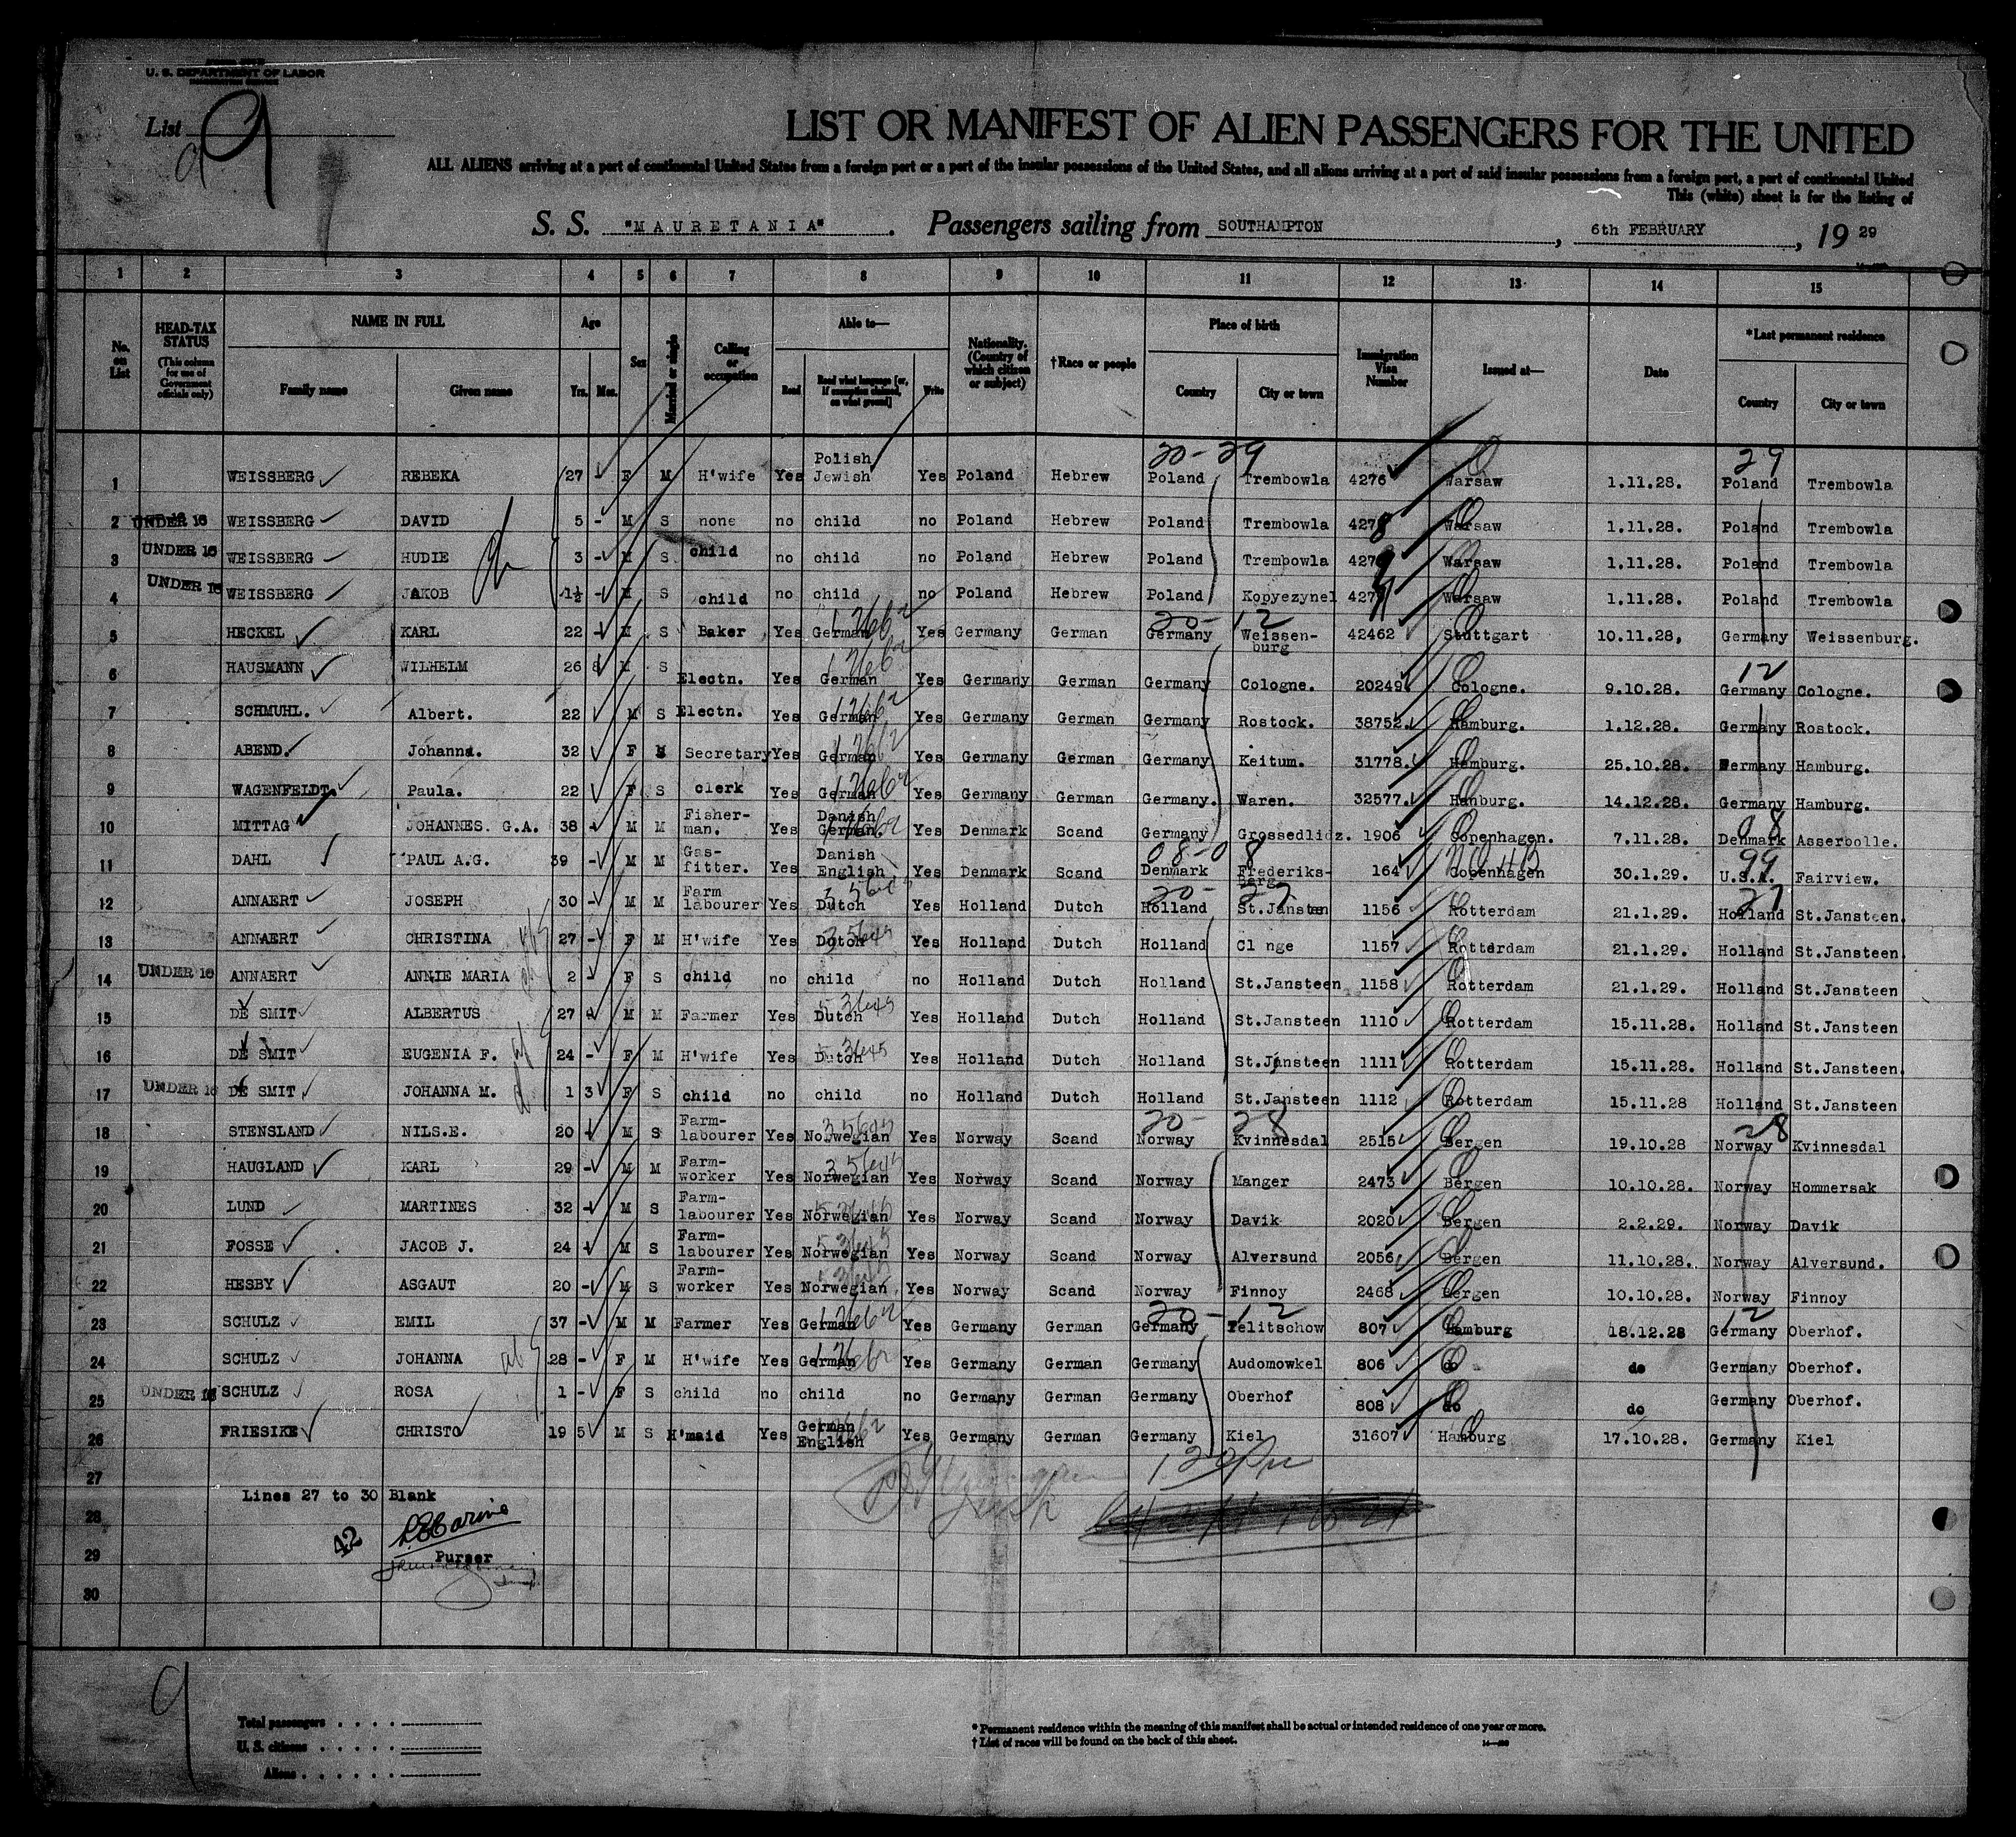 U. S. DEPARTMENT OF LABOR
List 9
LIST OR MANIFEST OF ALIEN PASSENGERS FOR THE UNITED
ALL ALIENS arriving at a port of continental United States from a foreign port or a port of the insular possessions of the United States, and all aliens arriving at a port of said insular possessions from a foreign port, a port of continental United
This (white) sheet is for the listing of
S. S. "MAURETANIA". Passengers sailing from SOUTHAMPTON, 6th FEBRUARY, 19 29
1 2 3 4 5 6 7 8 9 10 11 12 13 14 15
No. on List
HEAD-TAX STATUS (This column for use of Government officials only)
NAME IN FULL Family name Given name
Age Yrs. Mos.
Sex
Married or single
Calling or occupation
Able to— Read Read what language [or, if exemption claimed, on what ground] Write
Nationality. (Country of which citizen or subject)
†Race or people
Place of birth Country City or town
Immigration Visa Number
Issued at—
Date
*Last permanent residence Country City or town
20-29 29
1 WEISSBERG REBEKA 27 F M H'wife Yes Polish Jewish Yes Poland Hebrew Poland Trembowla 4276 Warsaw 1.11.28. Poland Trembowla
2 UNDER 16 WEISSBERG DAVID 5 - M S none no child no Poland Hebrew Poland Trembowla 4278 Warsaw 1.11.28. Poland Trembowla
3 UNDER 16 WEISSBERG HUDIE 3 - M S child no child no Poland Hebrew Poland Trembowla 427 Warsaw 1.11.28. Poland Trembowla
4 UNDER 16 WEISSBERG JAKOB 1½ - M S child no child no Poland Hebrew Poland Kopyezynel 427 Warsaw 1.11.28. Poland Trembowla
20-12
5 HECKEL KARL 22 - M S Baker Yes German Yes Germany German Germany Weissen-burg 42462 Stuttgart 10.11.28, Germany Weissenburg.
12
6 HAUSMANN WILHELM 26 8 M S Electn. Yes German Yes Germany German Germany Cologne. 20249 Cologne. 9.10.28. Germany Cologne.
7 SCHMUHL. Albert. 22 M S Electn. Yes German Yes Germany German Germany Rostock. 38752. Hamburg. 1.12.28. Germany Rostock.
8 ABEND. Johanna. 32 F S Secretary Yes German Yes Germany German Germany Keitum. 31778. Hamburg. 25.10.28. Germany Hamburg.
9 WAGENFELDT. Paula. 22 F S clerk Yes German Yes Germany German Germany. Waren. 32577. Hamburg. 14.12.28. Germany Hamburg.
10 MITTAG JOHANNES. G.A. 38 - M M Fisher-man. Yes Danish German Yes Denmark Scand Germany Grossedlidz. 1906 Copenhagen. 7.11.28. Denmark Asserbolle.
08-08 99
11 DAHL PAUL A.G. 39 - M M Gas-fitter. Yes Danish English Yes Denmark Scand Denmark Frederiks-Berg. 164 Copenhagen 30.1.29. U.S.A. Fairview.
20-27 27
12 ANNAERT JOSEPH 30 - M M Farm labourer Yes Dutch Yes Holland Dutch Holland St.Jansteen 1156 Rotterdam 21.1.29. Holland St.Jansteen.
13 ANNAERT CHRISTINA 27 - F M H'wife Yes Dutch Yes Holland Dutch Holland Cl nge 1157 Rotterdam 21.1.29. Holland St.Jansteen.
14 UNDER 16 ANNAERT ANNIE MARIA 2 - F S child no child no Holland Dutch Holland St.Jansteen 1158 Rotterdam 21.1.29. Holland St.Jansteen
15 DE SMIT ALBERTUS 27 M M Farmer Yes Dutch Yes Holland Dutch Holland St.Jansteen 1110 Rotterdam 15.11.28. Holland St.Jansteen
16 DE SMIT EUGENIA F. 24 - F M H'wife Yes Dutch Yes Holland Dutch Holland St.Jansteen 1111 Rotterdam 15.11.28. Holland St.Jansteen.
17 UNDER 16 DE SMIT JOHANNA M. 1 3 F S child no child no Holland Dutch Holland St.Jansteen 1112 Rotterdam 15.11.28 Holland St.Jansteen
20-28 28
18 STENSLAND NILS.E. 20 - M S Farm-labourer Yes Norwegian Yes Norway Scand Norway Kvinnesdal 2515 Bergen 19.10.28 Norway Kvinnesdal
19 HAUGLAND KARL 29 - M M Farm-worker Yes Norwegian Yes Norway Scand Norway Manger 2473 Bergen 10.10.28. Norway Hommersak
20 LUND MARTINES 32 - M S Farm-labourer Yes Norwegian Yes Norway Scand Norway Davik 2020 Bergen 2.2.29. Norway Davik
21 FOSSE JACOB J. 24 - M S Farm-labourer Yes Norwegian Yes Norway Scand Norway Alversund 2056 Bergen 11.10.28. Norway Alversund.
22 HESBY ASGAUT 20 - M S Farm-worker Yes Norwegian Yes Norway Scand Norway Finnoy 2468 Bergen 10.10.28. Norway Finnoy
20-12 12
23 SCHULZ EMIL 37 - M M Farmer Yes German Yes Germany German Germany Telitschow 807 Hamburg 18.12.28 Germany Oberhof.
24 SCHULZ JOHANNA 28 - F M H'wife Yes German Yes Germany German Germany Audomowkel 806 do do Germany Oberhof.
25 UNDER 16 SCHULZ ROSA 1 - F S child no child no Germany German Germany Oberhof 808 do do Germany Oberhof.
26 FRIESIKE CHRISTO 19 5 M S H'maid Yes German English Yes Germany German Germany Kiel 31607 Hamburg 17.10.28. Germany Kiel
27
Lines 27 to 30 Blank
28
42
29 Purser
30
9
Total passengers . . . .
U. S. citizens . . . . .
Aliens . . . . . .
* Permanent residence within the meaning of this manifest shall be actual or intended residence of one year or more.
† List of races will be found on the back of this sheet.